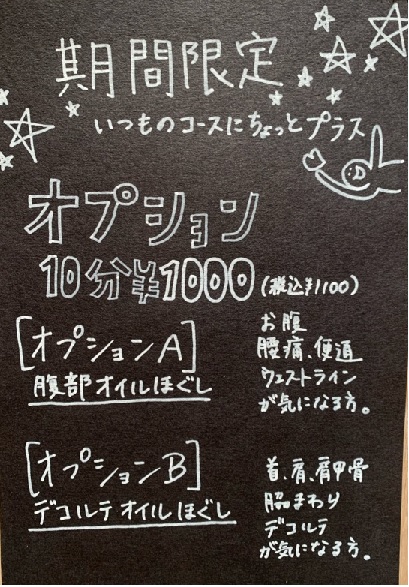 期間限定
いつものコースにちょっとプラス
オプション
10分¥1000(税込¥1100)
[オプションA]
腹部オイルほぐし
お腹
腰痛、便通
ウエストライン
が気になる方。
[オプションB]
デコルテオイルほぐし
首、肩、肩甲骨
脇まわり
デコルテ
が気になる方。